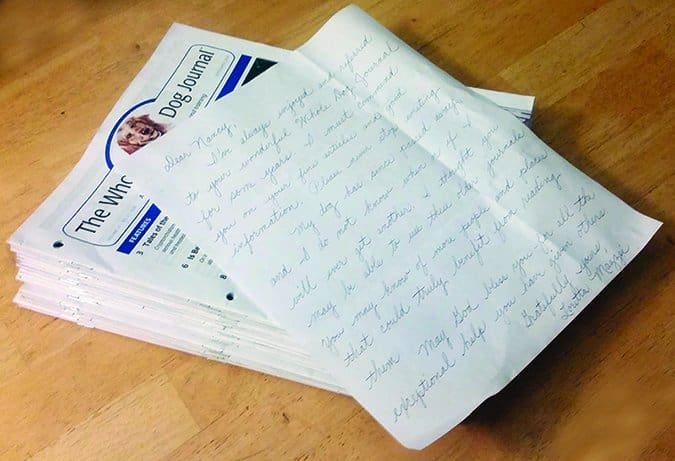 The Who
Dog Journal
FEATURES
3 Tales of the
6 Is Be
8
Dear Nancy,
I've always enjoyed and referred
to your wonderful Whole Dog Journal
for some years. I must commend
you on your fine articles and good
information. Please never stop writing.
My dog has since passed away
and I do not know when or if I
will ever get another. I thought you
may be able to use these dog journals.
You may know of more people and places
that could truly benefit from reading
them. May God bless you for all the
exceptional help you have given others
Gratefully yours
Loretta